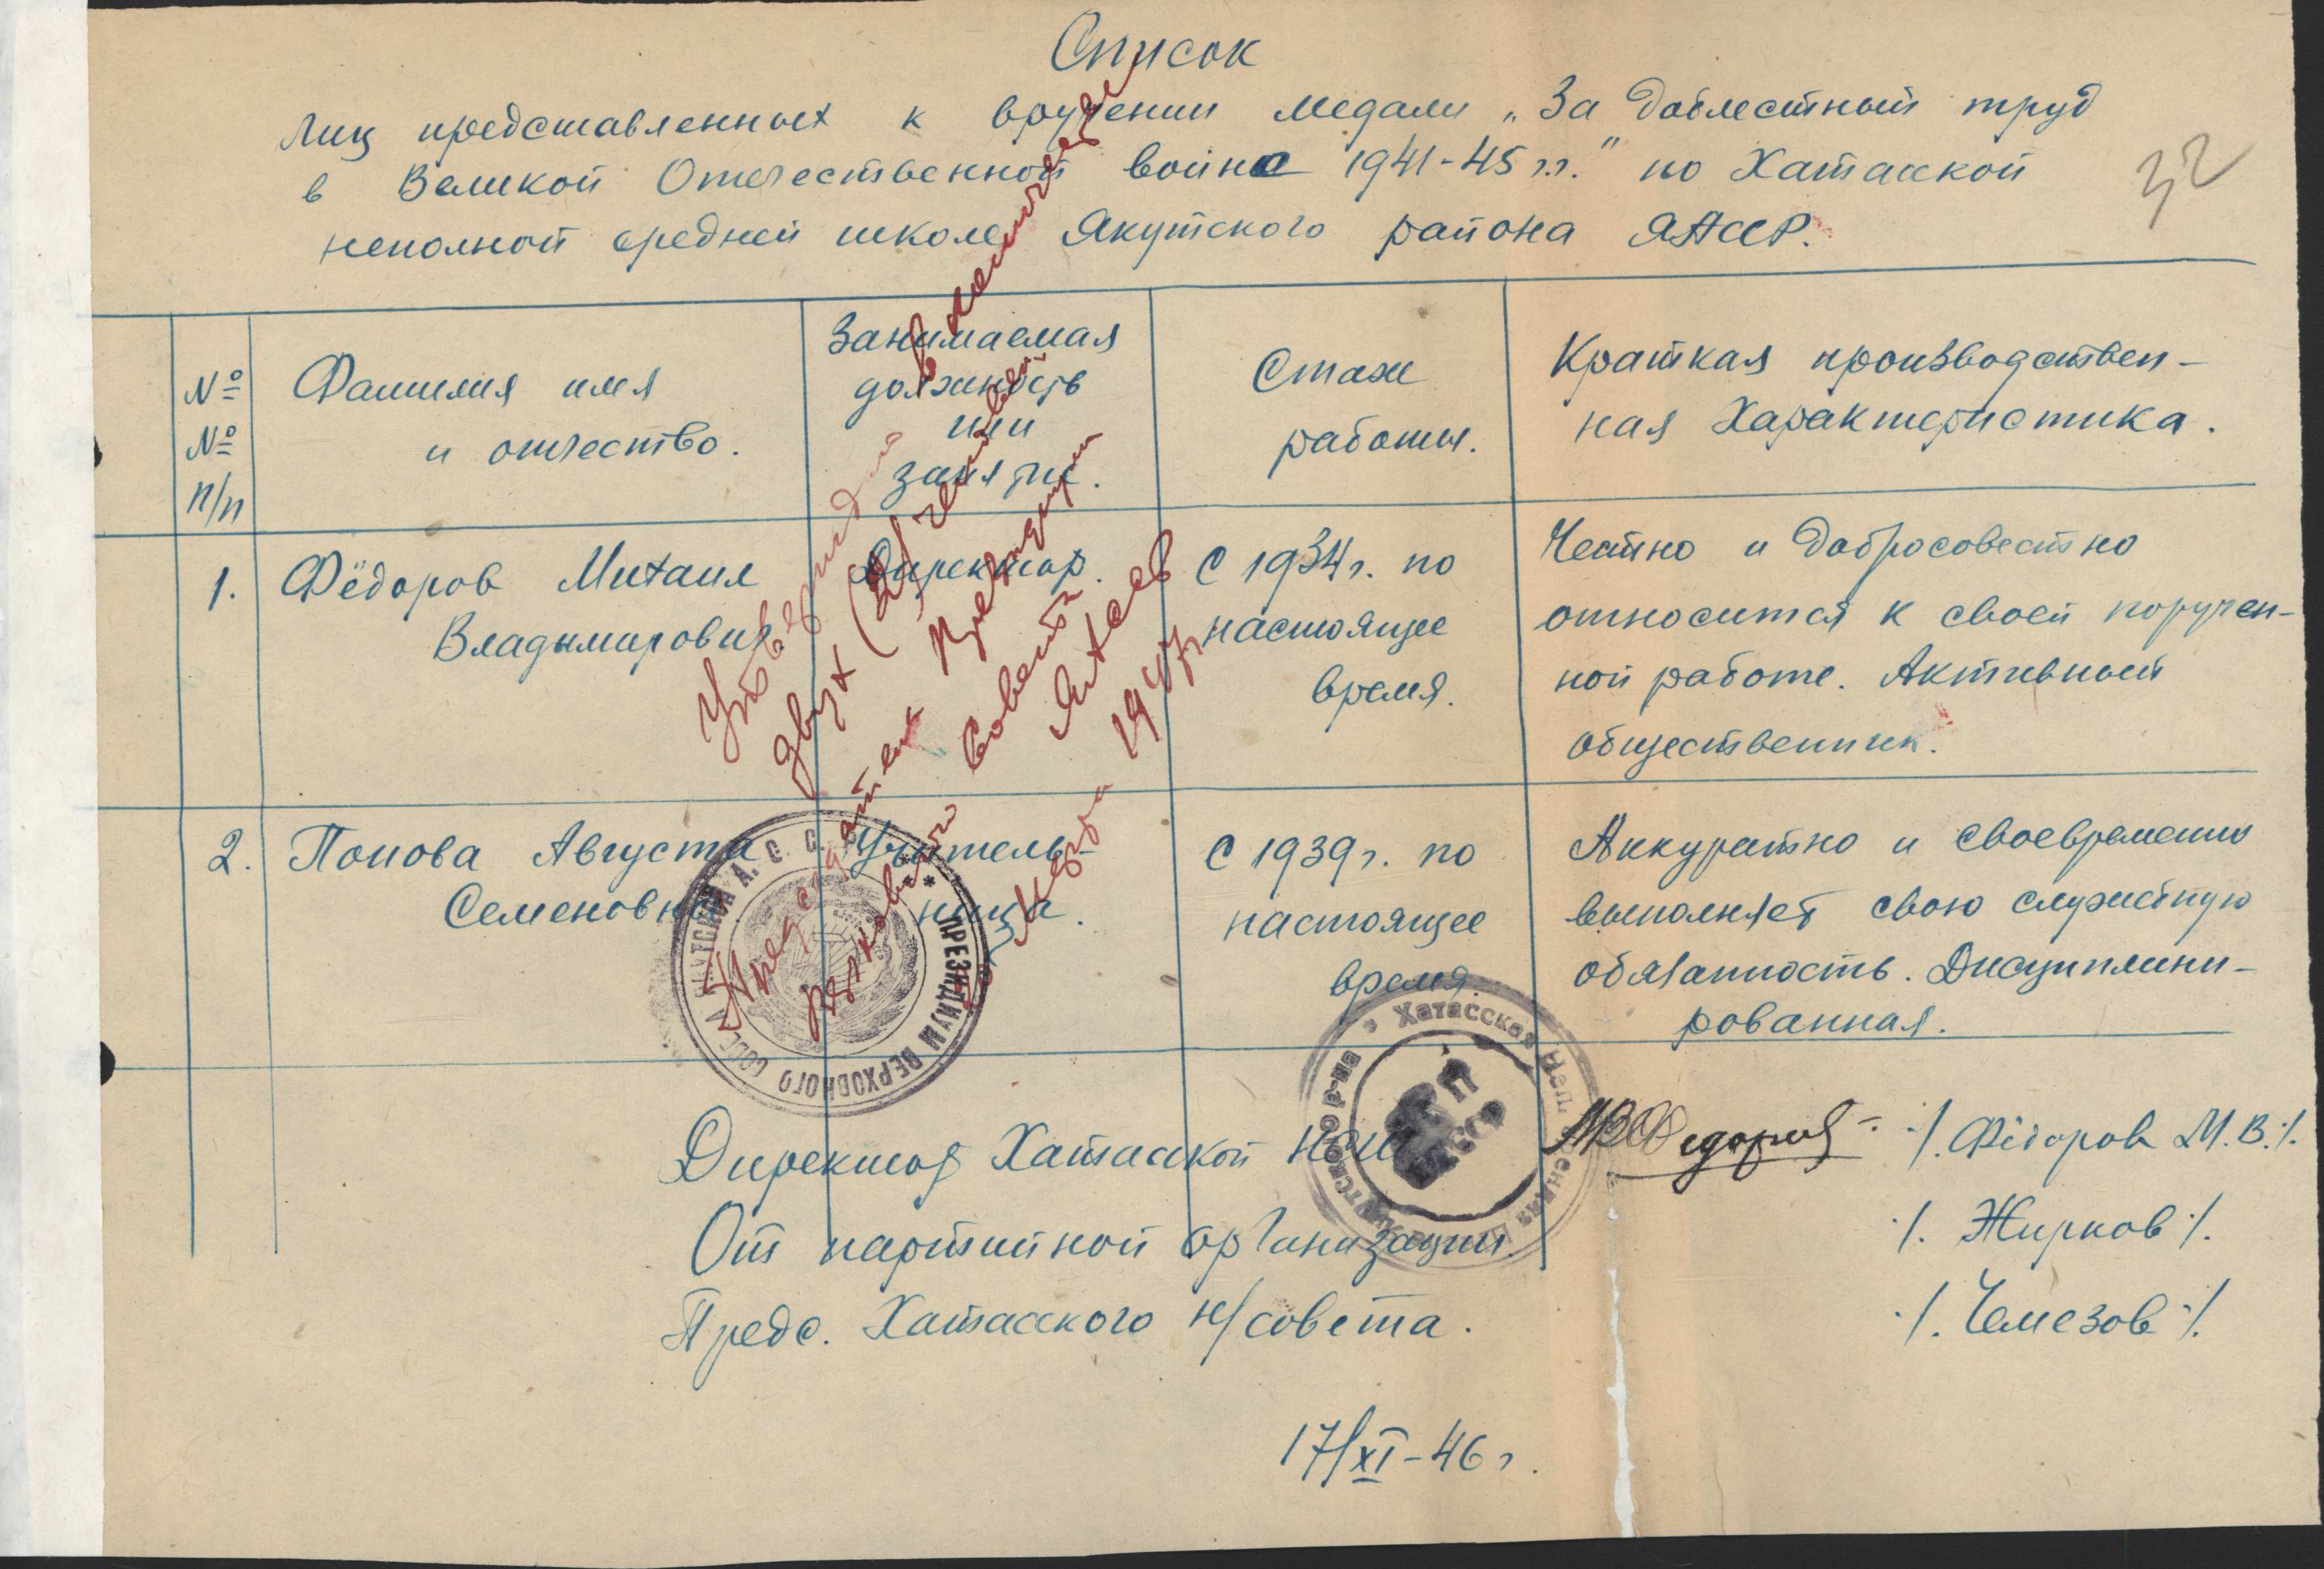 Список
Лиц представленных к вручении медали „За доблестный труд
в Великой Отечественной войне 1941-45 г.г." по Хатасской
неполной средней школе Якутского района ЯАССР.
32
№ № п/п
Фамилия имя
и отчество.
Занимаемая
должность
или
занятие.
Стаж
работы.
Краткая производствен-
ная Характеристика.
1.
Фёдоров Михаил
Владымирович
Директор.
С 1934 г. по
настоящее
время.
Честно и добросовестно
относится к своей поручен-
ной работе. Активный
общественник.
2.
Попова Августа
Семеновна
Учитель-
ница.
С 1939 г. по
настоящее
время.
Аккуратно и своевременно
выполняет свою служебную
обязанность. Дисциплини-
рованная.
Утвердил в количестве
двух (2) человек
Председатель Президиума
Верховного Совета
ЯАССР
марта 1947 г.
ПРЕЗИДИУМ ВЕРХОВНОГО СОВЕТА ЯКУТСКОЙ А. С. С. Р.
Хатасская
Якутского р-на
Директор Хатасской НСШ
МВФедоров - ./. Фёдоров М.В./.
От партийной организации. ./. Жирков ./.
Предс. Хатасского н/совета. ./. Чемезов ./.
17/XI-46 г.